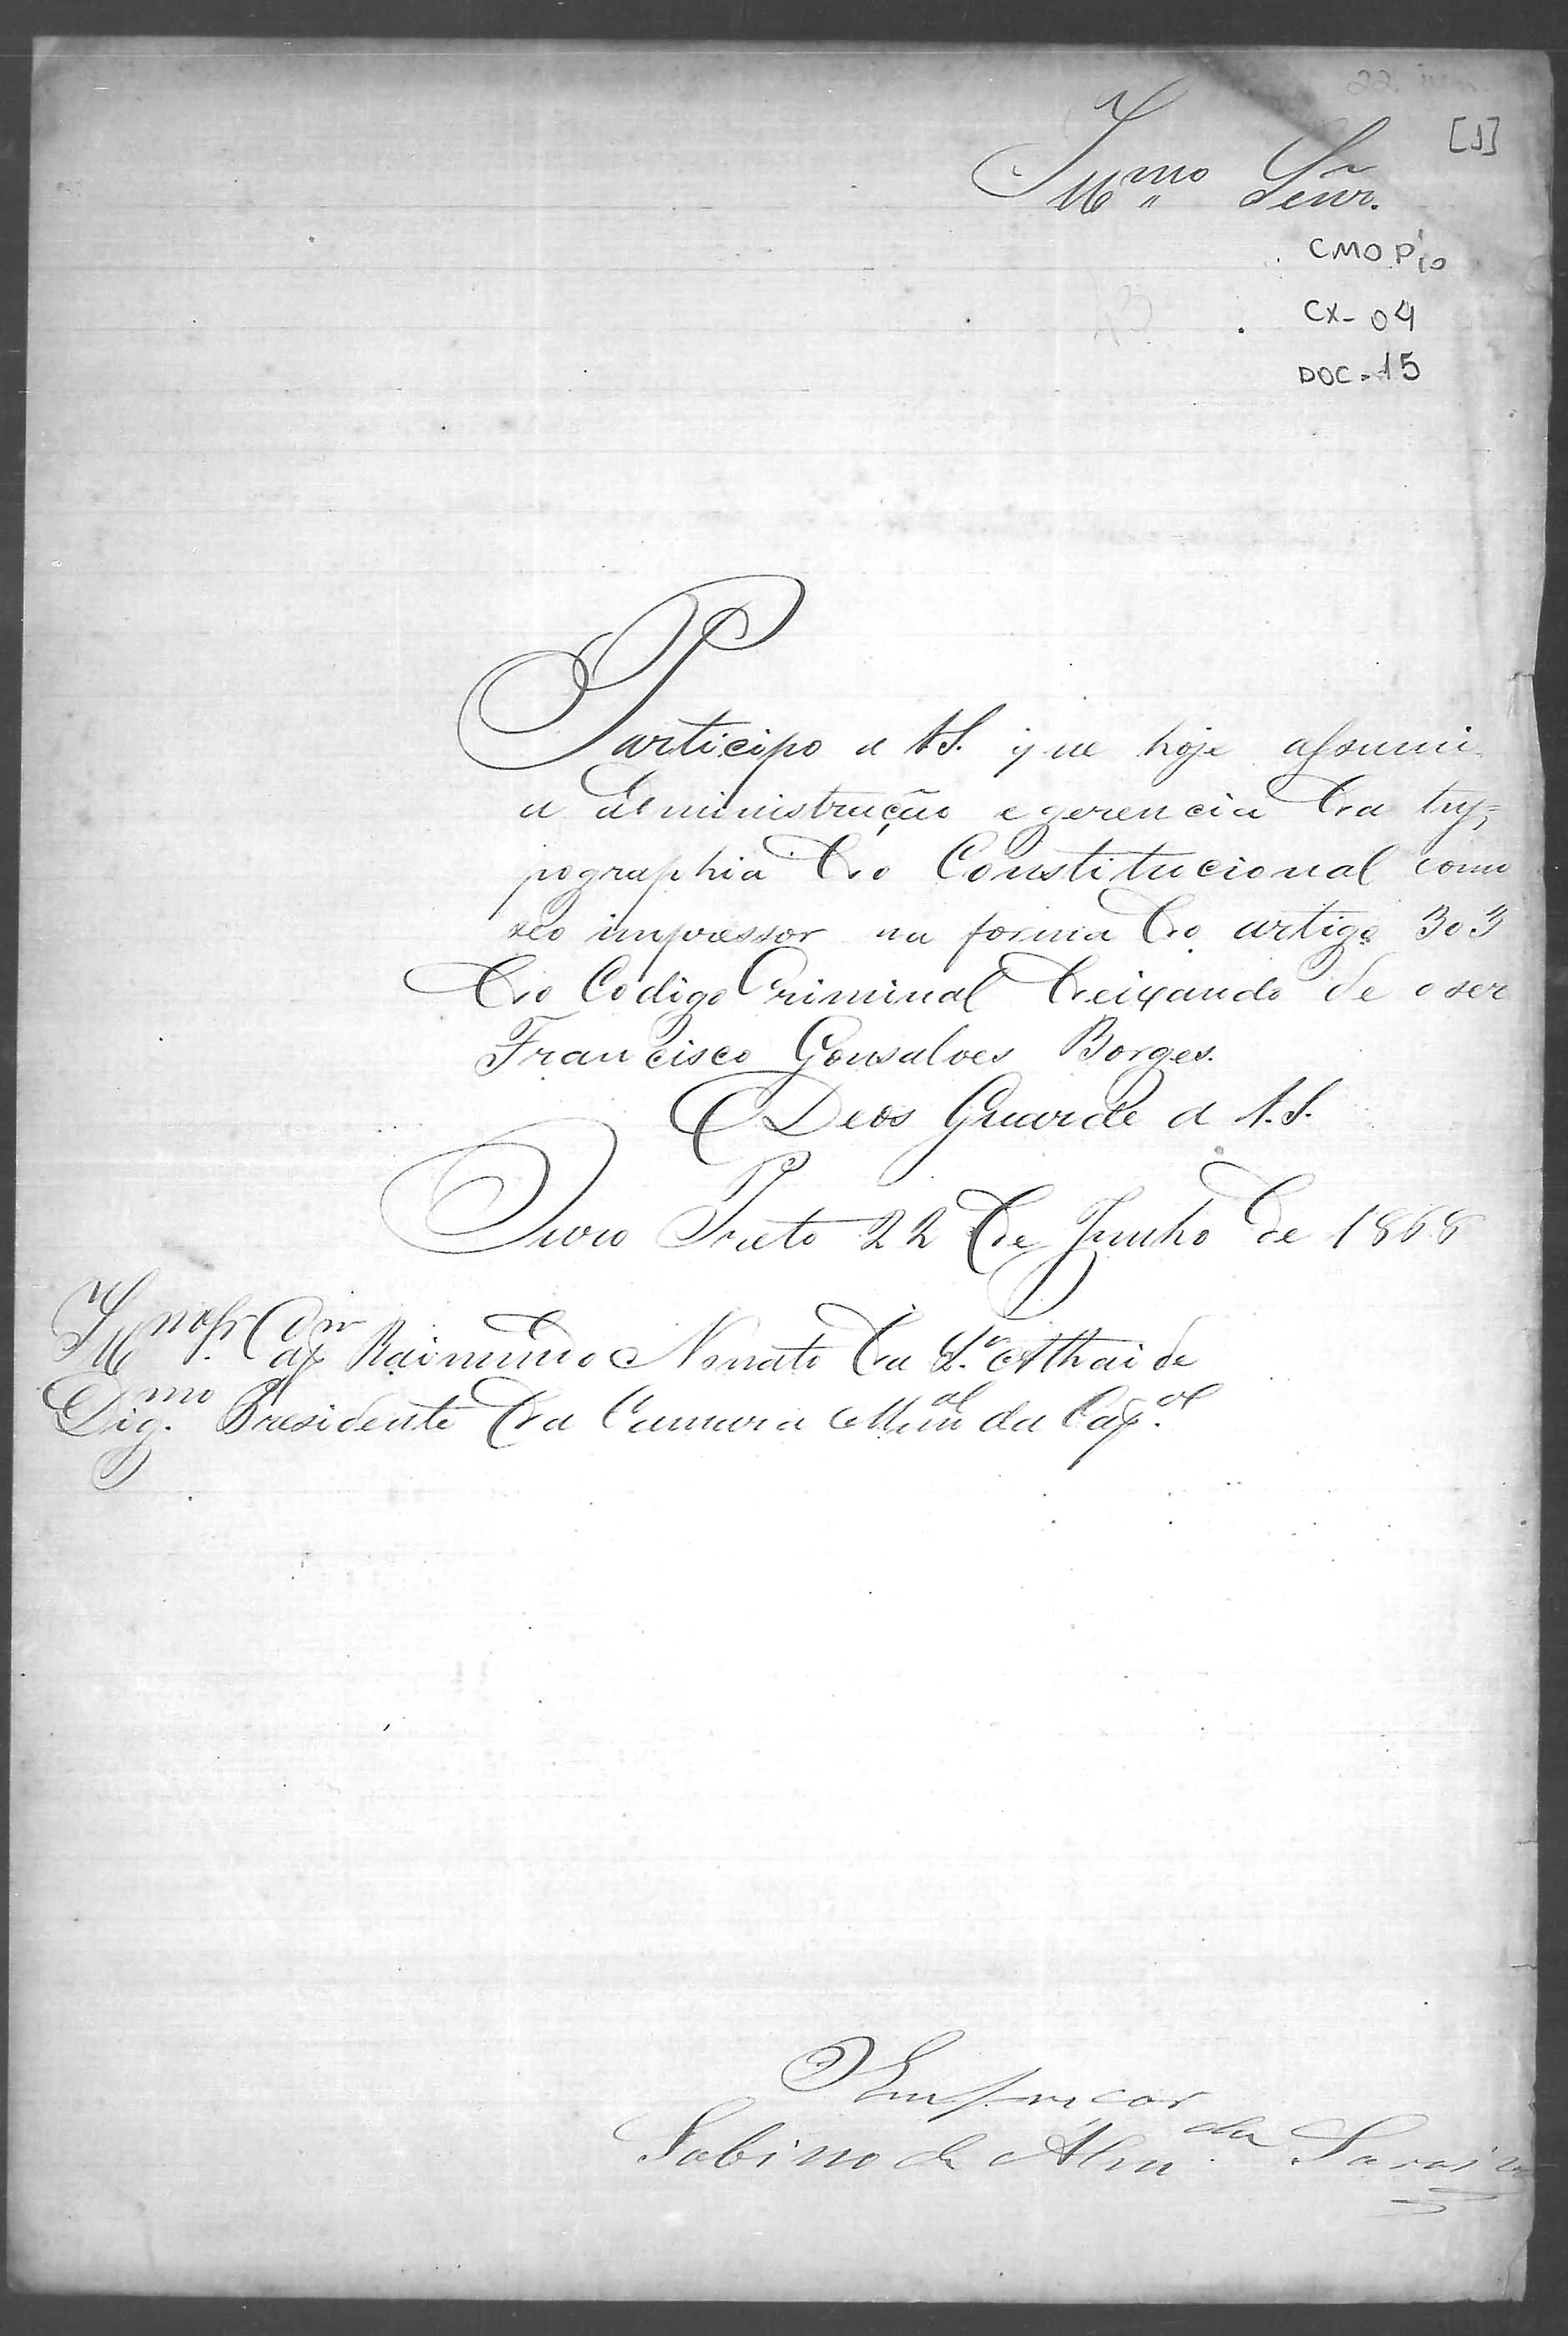 22 jun.
[1]
Illmo Senr.
CMOP 1º
CX- 04
DOC. 15
Participo a V.S. que hoje assumi
a administração e gerencia da ty=
pographia do Constitucional como
seo impressor na forma do artigo 303
do Codigo Criminal deixando de o ser
Francisco Gonsalves Borges.
Deos Guarde a V.S.
Ouro Preto 22 de Junho de 1868
Illmo Sr. Capm Raimundo Nonato da Sa Athaide
Digmo. Presidente da Camara Munal da Capal.
Sabino de Almda. Saraiva